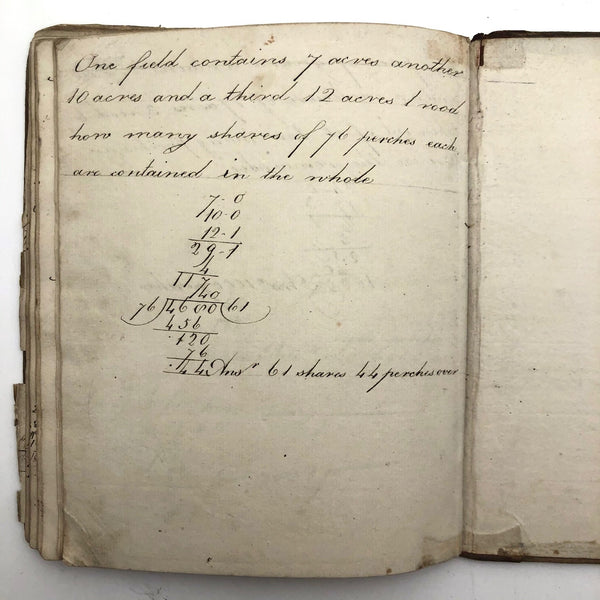 One field contains 7 acres another
10 acres and a third 12 acres 1 rood
how many shares of 76 perches each
are contained in the whole
7-0
10-0
12-1
29-1
4
117
40
76)4680(61
456
120
76
44 Ansr 61 shares 44 perches over